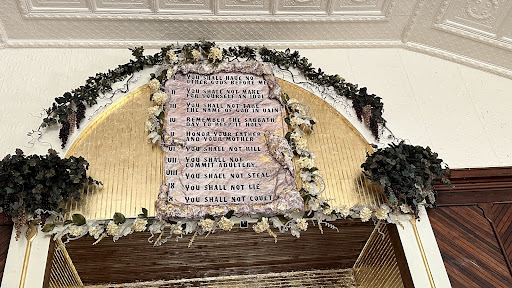 I YOU SHALL HAVE NO
OTHER GODS BEFORE ME
II YOU SHALL NOT MAKE
FOR YOURSELF AN IDOL
III YOU SHALL NOT TAKE
THE NAME OF GOD IN VAIN
IV REMEMBER THE SABBATH
DAY TO KEEP IT HOLY
V HONOR YOUR FATHER
AND YOUR MOTHER
VI YOU SHALL NOT KILL
VII YOU SHALL NOT
COMMIT ADULTERY
VIII YOU SHALL NOT STEAL
IX YOU SHALL NOT LIE
X YOU SHALL NOT COVET